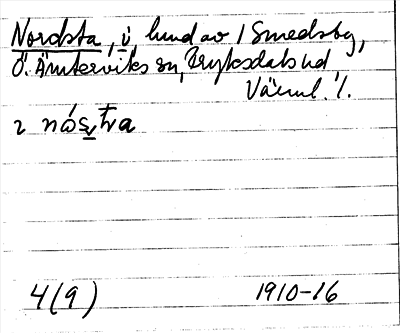 Nordsta, i, hund av 1 Smedsby,
Ö. Ämterviks sn, Fryksdals hd
Värml. l.
2 nástra
4(9) 1910-16